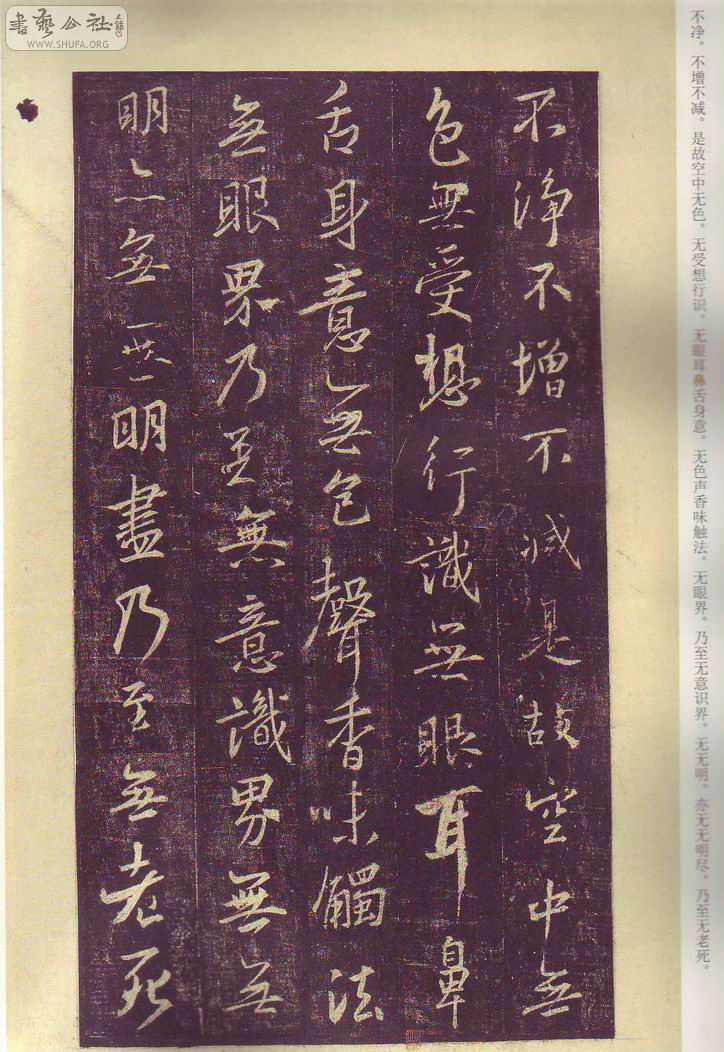 書藝公社
WWW.SHUFA.ORG
不净。不增不减。是故空中无色。无受想行识。无眼耳鼻舌身意。无色声香味触法。无眼界。乃至无意识界。无无明。亦无无明尽。乃至无老死。
不淨不增不減是故空中無
色無受想行識無眼耳鼻
舌身意無色聲香味觸法
無眼界乃至無意識界無無
明亦無無明盡乃至無老死